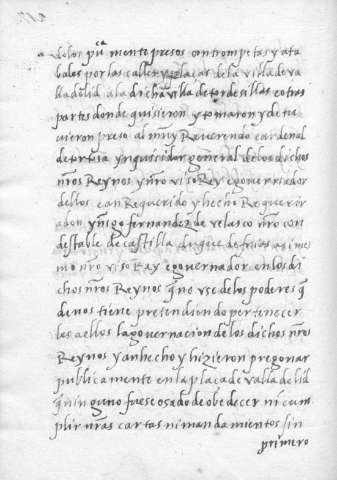 dolos puca mente presos con trompetas y ata
bales por las calles y plaças de la villa de va
lladolid a la dicha villa de tordesillas e otras
partes donde quisieron y tomaron y detu
vieron preso al muy Reverendo cardenal
de tortosa ynquisidor general de los dichos
nros Reynos y nro viso Rey e governador
dellos e an Requerido y hecho Requerir
a don yñigo fernandez de velasco nro con
destable de castilla duque de frias asi mes
mo nro viso Rey e governador en los di
chos nros Reynos q no vse de los poderes q
de nos tiene pretendiendo pertenecer
les a ellos la governacion de los dichos nros
Reynos y an hecho y hizieron pregonar
publicamente en la plaça de valladelid
q ninguno fuese osado de obedecer ni cum
plir nras cartas ni mandamientos sin
primero